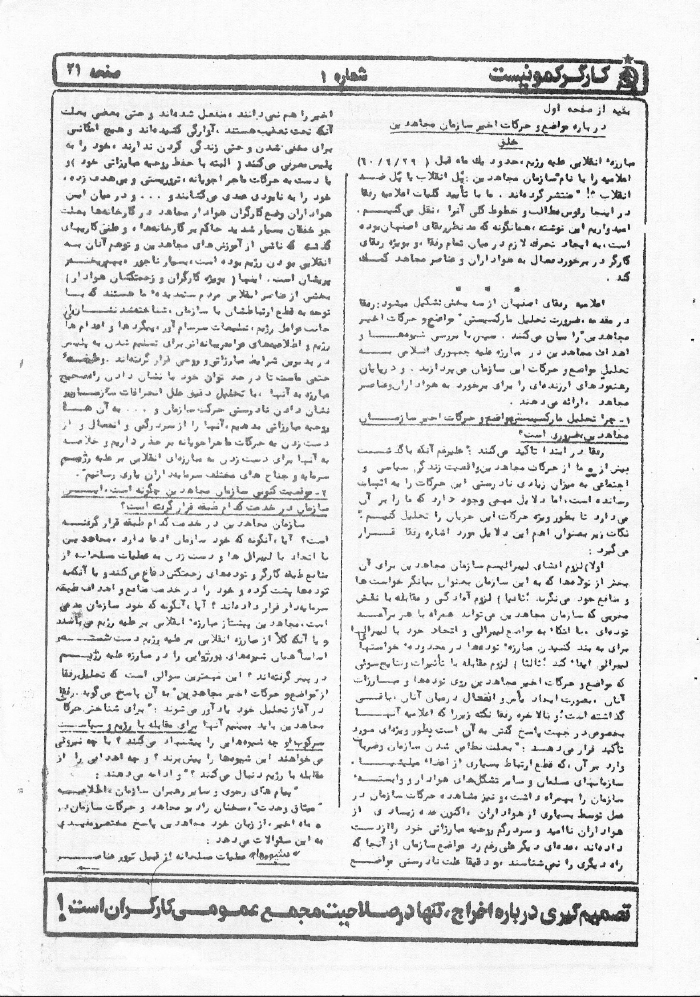 کارگر کمونیست
شماره ۱
صفحه ۲۱
بقیه از صفحه اول
درباره مواضع و حرکات اخیر سازمان مجاهدین
خلق
مبارزه انقلابی علیه رژیم، حدود یک ماه قبل (۶۰/۶/۲۹)
اعلامیه را با نام "سازمان مجاهدین: پل انقلاب یا پل ضد
انقلاب"! منتشر کرده‌اند. ما با تأیید کلیات اعلامیه رفقا
در اینجا رئوس مطالب و خطوط کلی آنرا، نقل می‌کنیم.
امیدواریم این نوشته، همانگونه که مدنظر رفقای اصفهان بوده
است، به ایجاد تحرک لازم در میان تمام رفقا، و بویژه رفقای
کارگر در برخورد فعال به هواداران و عناصر مجاهد کمک
کند.
* * *
اعلامیه رفقای اصفهان از سه بخش تشکیل میشود: رفقا
در مقدمه، ضرورت تحلیل مارکسیستی "مواضع و حرکات اخیر
مجاهدین" را بیان می‌کنند. سپس با بررسی شیوه‌ها و
اهداف مجاهدین در مبارزه علیه جمهوری اسلامی به
تحلیل مواضع و حرکات این سازمان می‌پردازند. و در پایان
رهنمودهای ارزنده‌ای را برای برخورد به هواداران و عناصر
مجاهد، ارائه می‌دهند.
۱- چرا تحلیل مارکسیستی مواضع و حرکات اخیر سازمان
مجاهدین ضروری است؟
رفقا در ابتدا تأکید می‌کنند: "علیرغم آنکه با گذشت
بیش از دو ماه از حرکات مجاهدین واقعیت زندگی سیاسی و
اجتماعی به میزان زیادی نادرستی این حرکات را به اثبات
رسانده است، اما دلایل مهمی وجود دارد که ما را بر آن
می‌دارد تا بطور ویژه حرکات این جریان را تحلیل کنیم."
نکات زیر بعنوان اهم این دلایل مورد اشاره رفقا قرار
می‌گیرد:
اولا) لزوم افشای لیبرالیسم سازمان مجاهدین برای آن
بخش از توده‌ها که به این سازمان بعنوان بیانگر خواست‌ها
و منافع خود می‌نگرند؛ ثانیا) لزوم آمادگی و مقابله با نقش
مخربی که سازمان مجاهدین می‌تواند همراه با هر برآمد
توده‌ای، با اتکا به مواضع لیبرالی و اتحاد خود با لیبرالها
برای به بند کشیدن مبارزه توده‌ها در محدوده خواستهای
لیبرالی ایفا کند؛ ثالثا) لزوم مقابله با تأثیرات و نتایج سوئی
که مواضع و حرکات اخیر مجاهدین روی توده‌ها و مبارزات
آنان، بصورت ایجاد یأس و انفعال در میان آنان، باقی
گذاشته است؛ و بالاخره رفقا نکته زیر را که اعلامیه آنها
بخصوص در جهت پاسخ گفتن به آن است بطور ویژه‌ای مورد
تأکید قرار می‌دهند: "بعلت نظامی شدن سازمان و ضربات
وارد بر آن، که قطع ارتباط بسیاری از اعضا، میلیشیا،
سازمانهای مسلمان و سایر تشکل‌های هوادار و وابسته
سازمان را بهمراه داشت، و نیز مشاهده حرکات سازمان در
عمل توسط بسیاری از هواداران، اکنون عده زیادی از
هواداران ناامید و سردرگم روحیه مبارزاتی خود را از دست
داده‌اند، عده‌ای دیگر علی‌رغم رد مواضع سازمان از آنجا که
راه دیگری را نمی‌شناسند، و دقیقا علت نادرستی مواضع
اخیر را هم نمی‌دانند، منفعل شده‌اند و حتی بعضی بعلت
آنکه تحت تعقیب هستند، آوارگی کشیده‌اند و هیچ امکانی
برای مخفی شدن و حتی زندگی کردن ندارند، خود را به
پلیس معرفی می‌کنند (البته با حفظ روحیه مبارزاتی خود) و
یا دست به حرکات ماجراجویانه، تروریستی و بی‌هدف زده،
خود را به نابودی عمدی می‌کشانند و ... و در میان این
هواداران وضع کارگران هوادار مجاهد در کارخانه‌ها بعلت
جو خفقان بسیار شدید حاکم بر کارخانه‌ها، و طی کارهای
گذشته که ناشی از آموزش‌های مجاهدین و توهم آنان به
انقلابی بودن رژیم بوده است، بسیار ناجور،
پریشان است. اینها (بویژه کارگران و زحمتکشان هوادار)
بخشی از عناصر انقلابی مردم ستمدیده ما هستند که با
توجه به قطع ارتباطشان با سازمان، شناخته شدنشان
جانب عوامل رژیم، تبلیغات سرسام‌آور، پیگردها و اعدام‌ها
رژیم و اطلاعیه‌های عوامفریبانه‌اش برای تسلیم شدن به پلیس
در بدترین شرایط مبارزاتی و روحی قرار گرفته‌اند. وظیفه
حتمی ماست تا در حد توان خود با نشان دادن راه صحیح
مبارزه به آنها، با تحلیل دقیق علل انحرافات سازمان و
نشان دادن نادرستی حرکت سازمان و ... به آن‌ها
روحیه مبارزاتی بدهیم، آنها را از سردرگمی و انفعال و از
دست زدن به حرکات ماجراجویانه بر حذر داریم و خلاصه
به آنها برای دست زدن به مبارزه‌ای انقلابی بر علیه رژیم
سرمایه و جناح های مختلف سرمایه‌داران یاری رسانیم".
۲- موقعیت کنونی سازمان مجاهدین چگونه است، این
سازمان در خدمت کدام طبقه قرار گرفته است؟
سازمان مجاهدین در خدمت کدام طبقه قرار گرفته
است؟ آیا، آنگونه که خود سازمان ادعا دارد، مجاهدین
با اتحاد با لیبرال ها و دست زدن به عملیات مسلحانه از
منافع طبقه کارگر و توده‌های زحمتکش دفاع می‌کنند و یا آنکه به
توده‌ها پشت کرده و خود را در خدمت منافع و اهداف طبقه
سرمایه‌دار قرار داده‌اند؟ آیا، آنگونه که خود سازمان مدعی
است، مجاهدین پیشتاز مبارزه انقلابی بر علیه رژیم می‌باشند
و یا آنکه کلا از مبارزه انقلابی بر علیه رژیم دست شسته و
اساسا همان شیوه‌های بورژوایی را در مبارزه علیه رژیم
در پیش گرفته‌اند؟ این مهمترین سوالی است که تحلیل رفقا
از "مواضع و حرکات اخیر مجاهدین" به آن پاسخ می‌گوید. رفقا
در آغاز تحلیل خود یادآور می‌شوند: "برای شناختن حرکات
مجاهدین باید ببینیم آنها برای مقابله با رژیم و سیاست
سرکوب او چه شیوه‌هایی را پیشنهاد می‌کنند؟ با چه نیروئی
می‌خواهند این شیوه‌ها را پیش برند؟ و چه اهدافی را از
مقابله با رژیم دنبال می‌کنند؟" و ادامه می‌دهند:
"پیام های رجوی و سایر رهبران سازمان، اطلاعیه
"میثاق وحدت"، سخنان رادیو مجاهد و حرکات سازمان در
ماه اخیر، از زبان خود مجاهدین پاسخ مختصر و مفیدی
به این سئوالات می‌دهد:
"شیوه‌ها: عملیات مسلحانه از قبیل ترور عناصر
تصمیم گیری درباره اخراج، تنها در صلاحیت مجمع عمومی کارگران است!